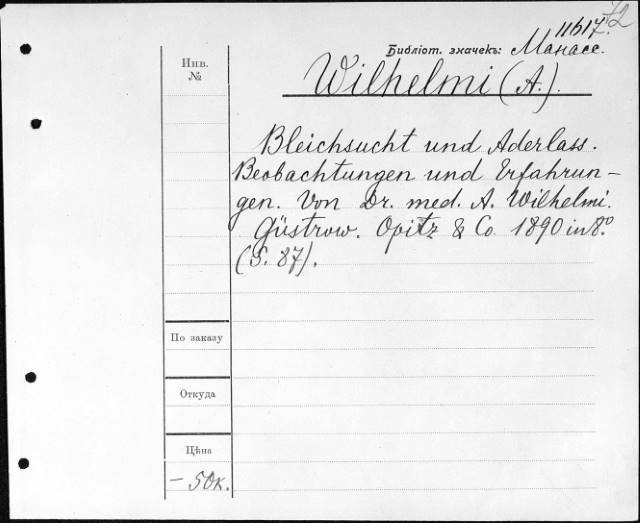 72
11617.
Библіот. значекъ: Манасс.
Инв.
№
Wilhelmi (A.).
Bleichsucht und Aderlass.
Beobachtungen und Erfahrun-
gen. Von Dr. med. A. Wilhelmi.
Güstrow. Opitz & Co. 1890 in 8.°
(S. 87).
По заказу
Откуда
Цѣна
– 50к.